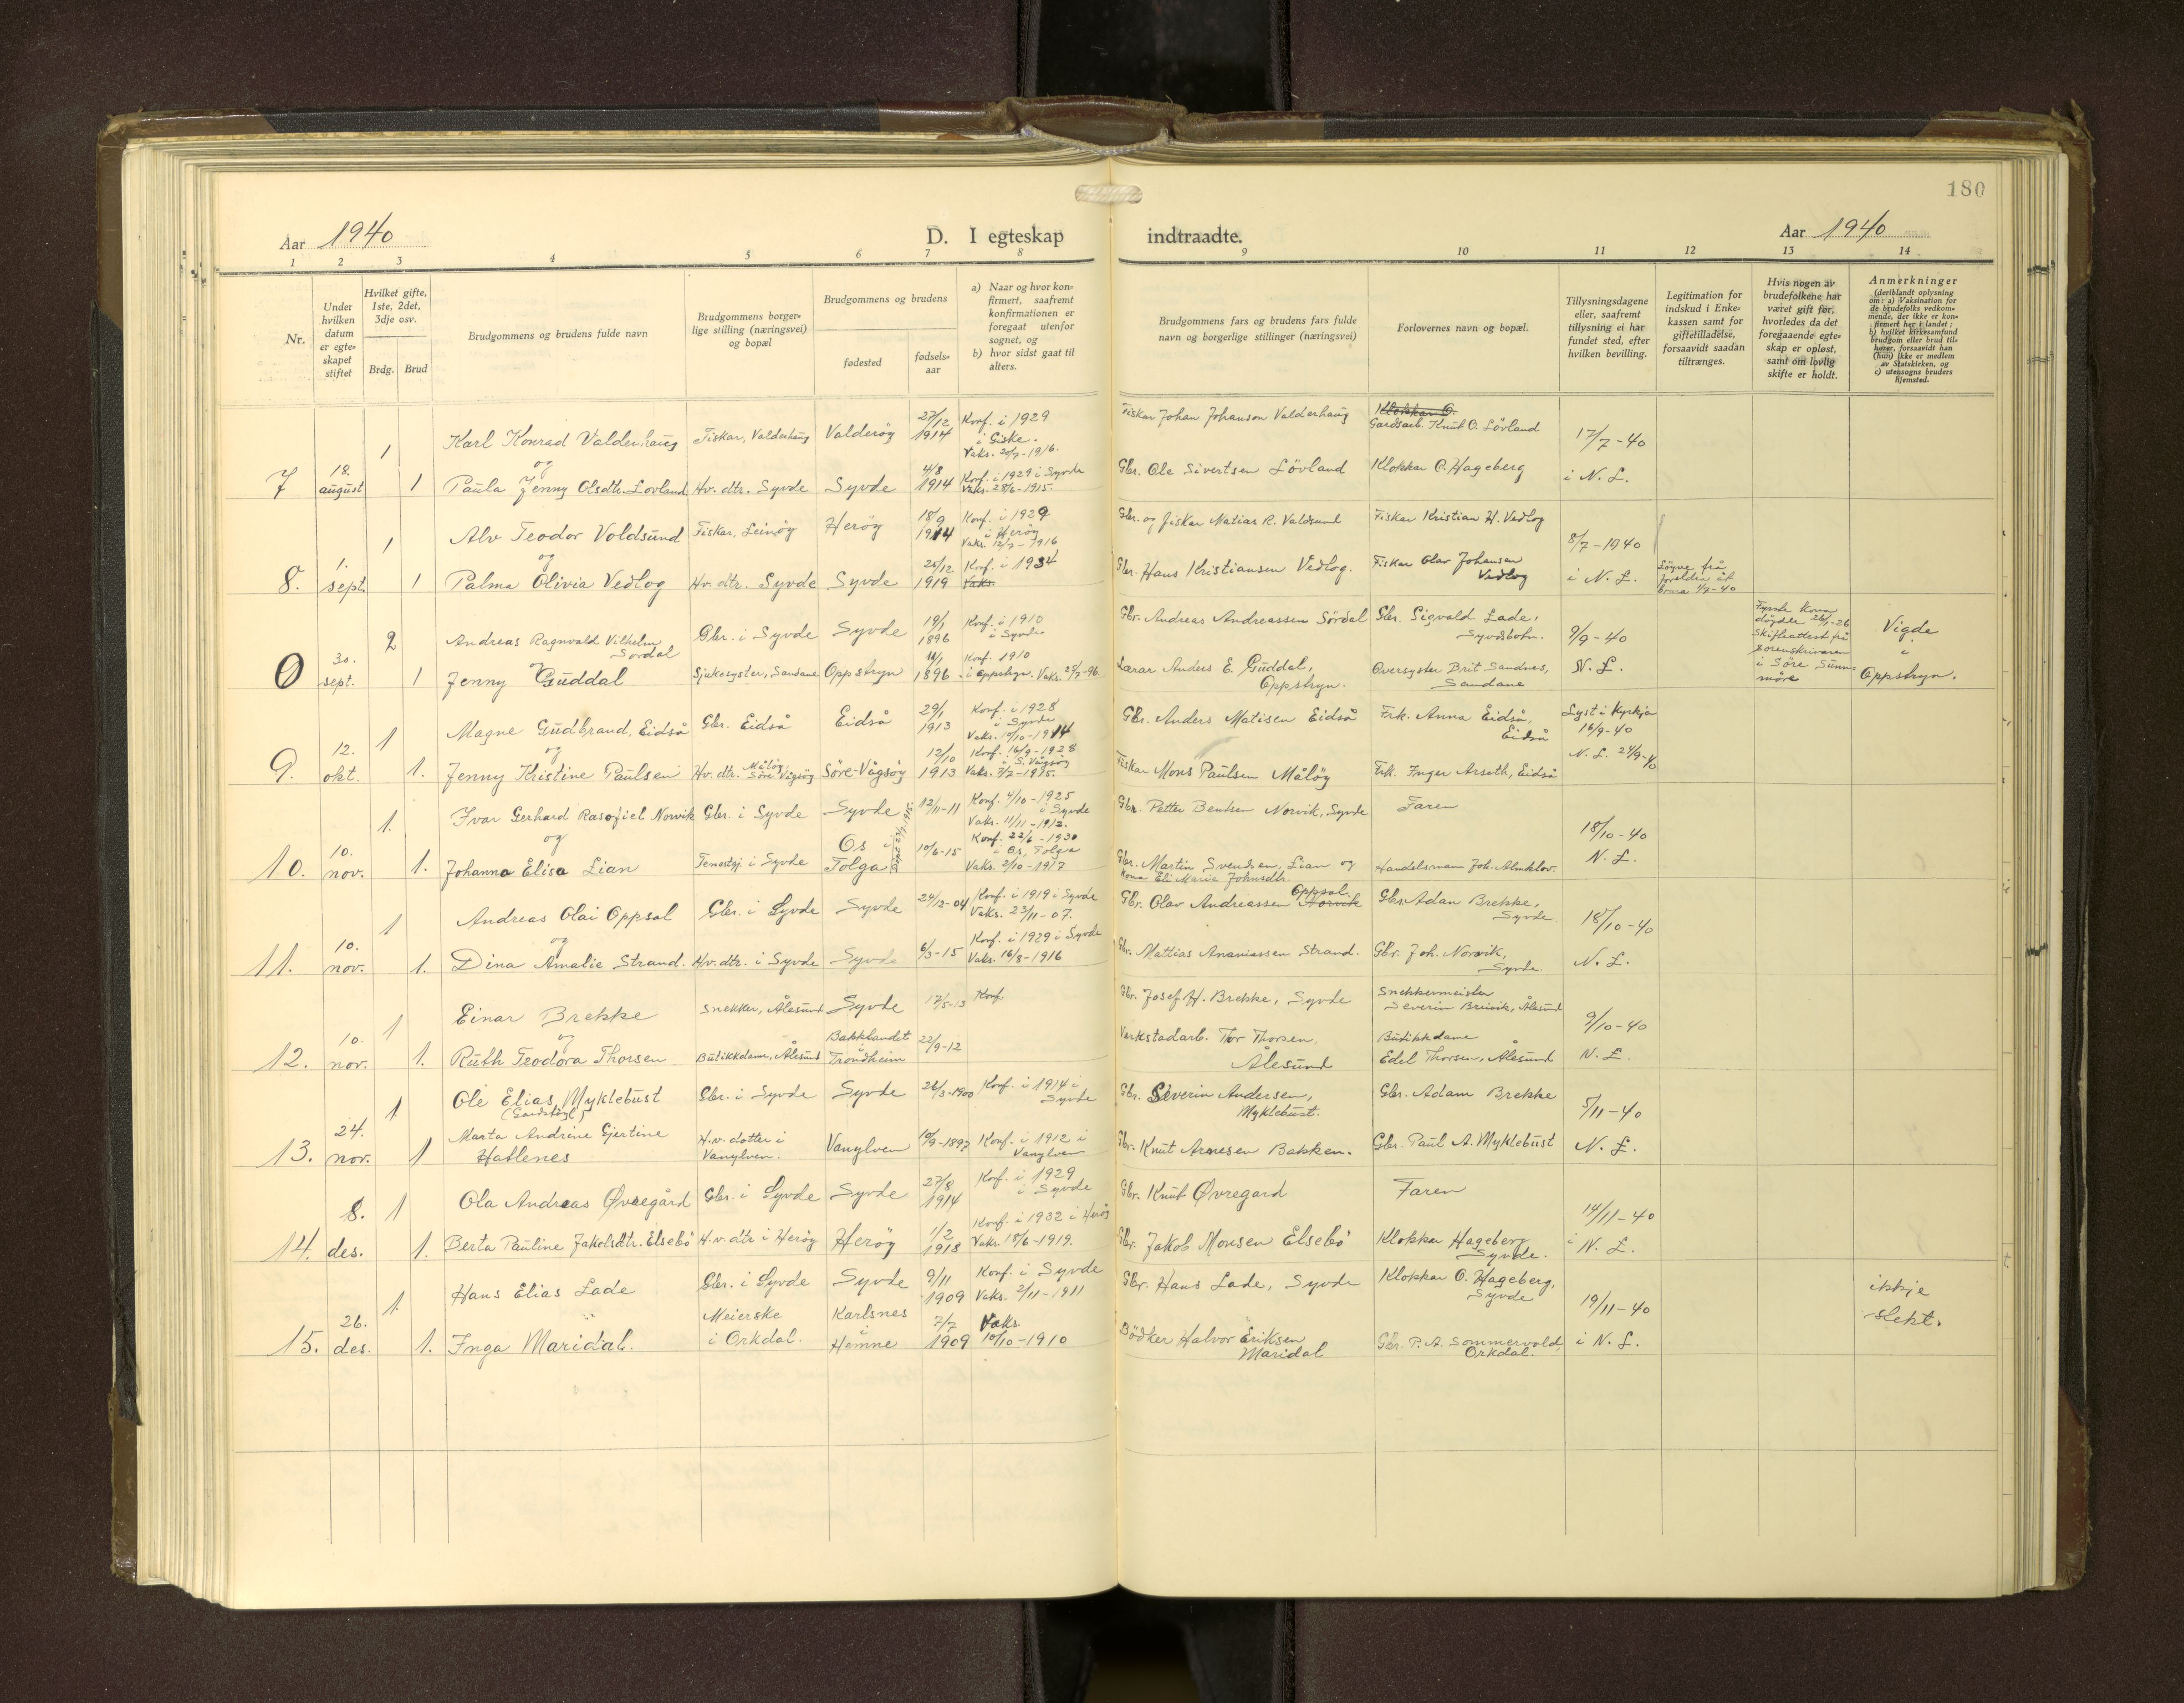 180
Aar 1940
D. I egteskap indtraadte.
Aar 1940
1 2 3 4 5 6 7 8 9 10 11 12 13 14
Nr.
Under hvilken datum er egteskapet stiftet
Hvilket gifte, 1ste, 2det, 3dje osv.
Brdg. Brud
Brudgommens og brudens fulde navn
Brudgommens borgerlige stilling (næringsvei) og bopæl
Brudgommens og brudens
fødested
fødselsaar
a) Naar og hvor konfirmert, saafremt konfirmationen er foregaat utenfor sognet, og
b) hvor sidst gaat til alters.
Brudgommens fars og brudens fars fulde navn og borgerlige stillinger (næringsvei)
Forlovernes navn og bopæl.
Tillysningsdagene eller, saafremt tillysning ei har fundet sted, efter hvilken bevilling.
Legitimation for indskud i Enkekassen samt for giftetilladelse, forsaavidt saadan tiltrænges.
Hvis nogen av brudefolkene har været gift før, hvorledes da det foregaaende egteskap er opløst, samt om lovlig skifte er holdt.
Anmerkninger
(deriblandt oplysning om: a) Vaksination for de brudefolks vedkommende, der ikke er konfirmert her i landet; b) hvilket kirkesamfund brudgom eller brud tilhører, forsaavidt han (hun) ikke er medlem av Statskirken, og c) utensogns bruders hjemsted.
7 18. august 1 Karl Konrad Valderhaug Fiskar, Valderhaug Valderöy 27/12 1914 Konf. i 1929 i Giske. Vaks. 20/7-1916. Fiskar Johan Johanson Valderhaug Klokkar O. Gardsarb. Knut O. Lövland 17/7-40
og
1 Paula Jenny Olsdtr. Lovland Hv. dtr. Syvde Syvde 4/8 1914 Konf. i 1929 i Syvde Vaks. 28/6-1915. Gbr. Ole Sivertsen Lövland Klokkar O. Hageberg i N. L.
8. 1. sept. 1 Alv Teodor Voldsund Fiskar, Leinöy Heröy 18/9 1914 Konf. i 1929 i Heröy Vaks. 12/7-1916 Gbr. og fiskar Matias R. Valdsund Fiskar Kristian H. Vedlog 8/7-1940
og
1 Palma Olivia Vedlog Hv. dtr. Syvde Syvde 25/12 1919 Konf. i 1934 Vaks. Gbr. Hans Kristiansen Vedlog. Fiskar Olav Johansen Vedlog i N. L. Löyve frå foreldra åt brura 1/7-40
0 30. sept. 2 Andreas Ragnvald Vilhelm Sordal Gbr. i Syvde Syvde 19/1 1896 Konf. i 1910 i Syvde Gbr. Andreas Andreassen Sördal Gbr. Sigvald Lade, Syvdsbotn. 9/9-40 Fyrste kona döydde 26/1-26 Skifteattest frå Sorenskrivaren i Söre Sunnmöre Vigde i Oppstryn.
1 Jenny Guddal Sjukesyster, Sandane Oppstryn 1896 Konf. 1910 i Oppstryn. Lærar Anders E. Guddal, Oppstryn. Oversyster Brit Sandnes, Sandane N. L.
9. 12. okt. 1 Magne Gudbrand Eidså Gbr. Eidså Eidså 29/1 1913 Konf. i 1928 i Syvde Vaks. 10/10-1914 Gbr. Anders Matisen Eidså Frk. Anna Eidså, Eidså Lyst i Kyrkja 16/9-40
og
1. Jenny Kristine Paulsen Hv. dtr. Måløy, Söre-Vågsöy Söre-Vågsöy 12/10 1913 Konf. 16/9-1928 i S. Vågsöy Vaks. 7/7-1915. Fiskar Mons Paulsen Målöy Frk. Inger Arseth, Eidså N. L. 24/9-40
10. 10. nov. 1. Ivar Gerhard Rasofiel Norvik Gbr. i Syvde Syvde 12/11-11 Konf. 4/10-1925 i Syvde Vaks. 11/11-1912. Gbr. Petter Bentsen Norvik, Syvde Faren 18/10-40
og
1. Johanna Elisa Lian Tenestgj. i Syvde Os i Tolga 10/6-15 Konf. 22/6-1930 i Os, Tolga Vaks. 2/10-1917 Gbr. Martin Svendsen, Lian og kona Eli Marie Johnsdtr. Handelsmann Joh. Almklov. N. L.
11. 10. nov. 1 Andreas Olai Oppsal Gbr. i Syvde Syvde 24/12-04 Konf. i 1919 i Syvde Vaks. 23/11-07. Gbr. Olav Andreassen Norvik Oppsal. Gbr. Adan Brekke, Syvde 18/10-40
og
1. Dina Amalie Strand. Hv. dtr. i Syvde Syvde 6/3-15 Konf. i 1929 i Syvde Vaks. 16/8-1916 Gbr. Mattias Ananiassen Strand. Gbr. Joh. Norvik, Syvde. N. L.
12. 10. nov. 1 Einar Brekke Snekker, Ålesund Syvde 17/5-13 Konf Gbr. Josef H. Brekke, Syvde Snekkermeister Severin Brüvik, Ålesund 9/10-40
og
1. Ruth Teodora Thorsen Butikkdame, Ålesund Bakklandet i Trondheim 22/9-12 Verkstadarb. Tor Thorsen, Ålesund Butikkdame Edel Thorsen, Ålesund N. L.
13. 24. nov. 1 Ole Elias Myklebust Gbr. i Syvde Syvde 26/3-1900 Konf. i 1914 i Syvde Gbr. Severin Andersen, Myklebust. Gbr. Adam Brekke 5/11-40
1 Marta Andrine Gjertine Hatlenes H.v. dotter i Vanylven. Vanylven 10/9-1897 Konf. i 1912 i Vanylven Gbr. Knut Arnesen Bakken. Gbr. Paul A. Myklebust N. L.
14. 8. des. 1 Ola Andreas Øvregård Gbr. i Syvde Syvde 27/8 1914 Konf. i 1929 i Syvde Gbr. Knut Øvregard Faren 14/11-40
1. Berta Pauline Jakobsdtr. Elsebö H.v. dtr i Heröy Heröy 1/2 1918 Konf. i 1932 i Heröy Vaks. 18/6-1919. Gbr. Jakob Monsen Elsebö Klokkar Hageberg Syvde. i N. L.
15. 26. des. 1 Hans Elias Lade Gbr. i Syvde Syvde 9/11 1909 Konf. i Syvde Vaks. 2/11-1911 Gbr. Hans Lade, Syvde Klokkar O. Hageberg, Syvde 19/11-40 ikkje slekt.
1. Inga Maridal. Meierske i Orkdal. Karlsnes i Hemne 7/7 1909 Vaks. 10/10-1910 Bödker Halvor Eriksen Maridal Gbr. P. A. Sommervold, Orkdal. i N. L.